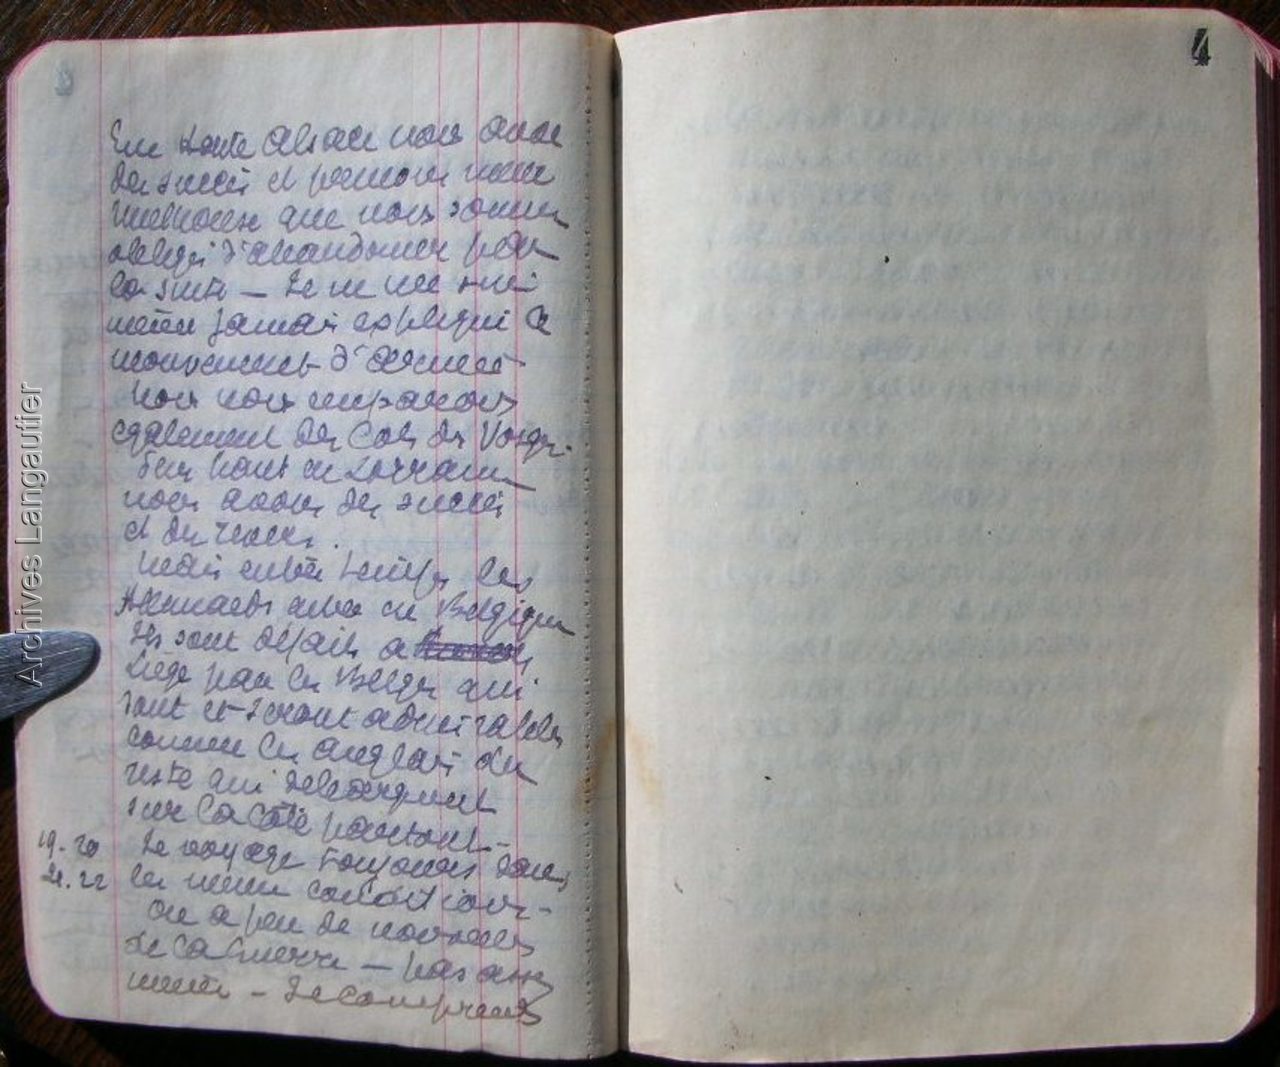 4
En Haute Alsace nous avons
des succès et prenons même
Mulhouse que nous sommes
obligés d'abandonner par
la suite — Je ne me suis
même jamais expliqué ce
mouvement d'armées -
Nous nous emparons
également des Cols des Vosges.
Plus haut en Lorraine
nous avons des succès
et des revers.
Mais entre temps les
Allemands entre en Belgique
Ils sont défaits a
Liège par les Belges qui
sont et seront admirables
comme les anglais du
reste qui débarquent
sur la côte partout -
19 - 20 Je voyage toujours dans
21. 22 les même conditions -
on a peu de nouvelles
de la Guerre — pas assez
même - Je comprends
Archives Langautier